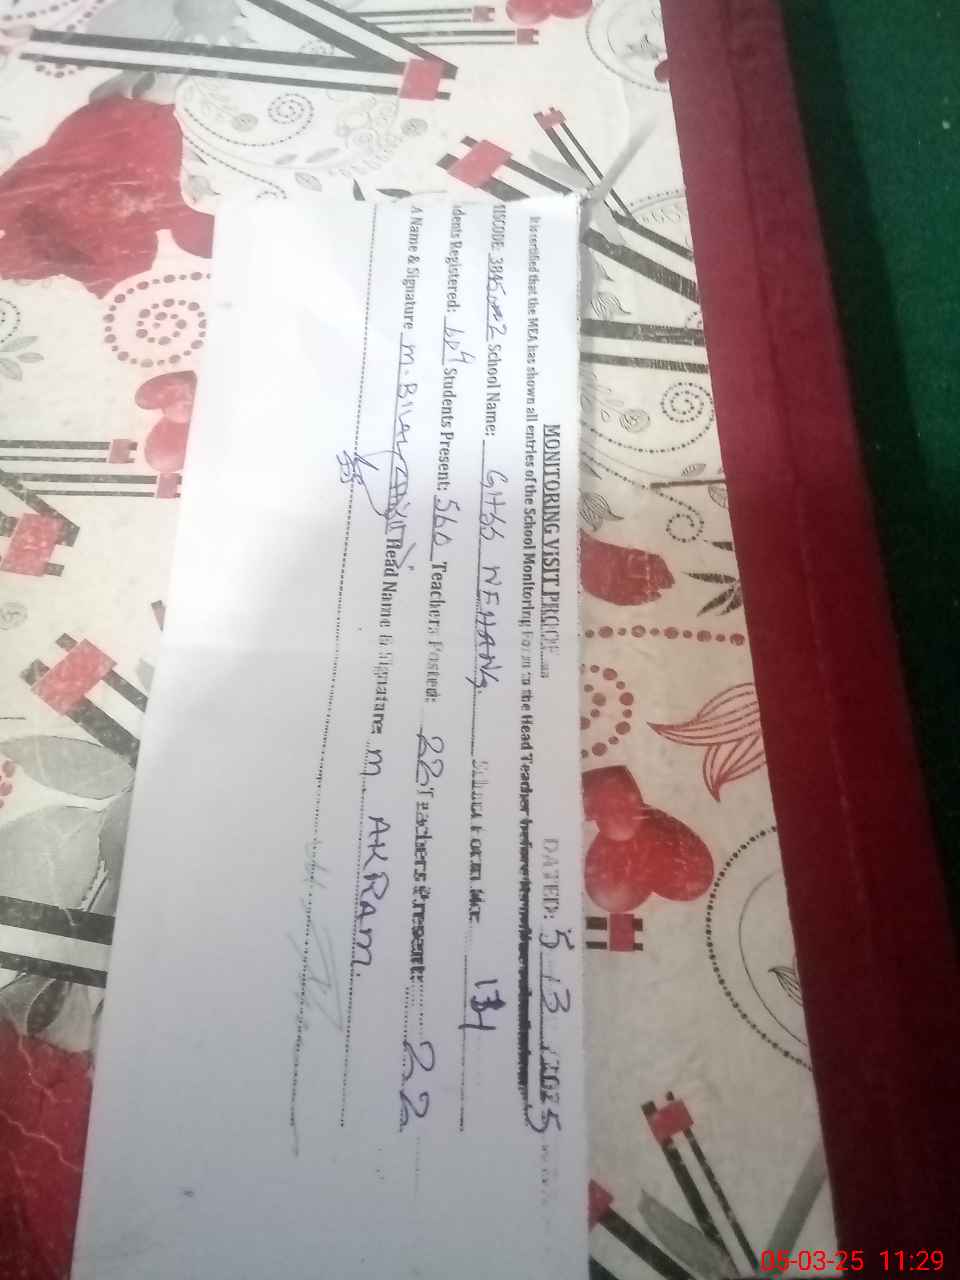 MONITORING VISIT PROOF DATED: 5 / 3 / 2025
It is certified that the MEA has shown all entries of the School Monitoring Form to the Head Teacher before
MISCODE: School Name: GHSS NEHANG School Form No: 131
dents Registered: 604 Students Present: 560 Teachers Posted: 22 Teachers Present: 22
A Name & Signature M. BILAL Head Name & Signature M AKRAM.
05-03-25 11:29